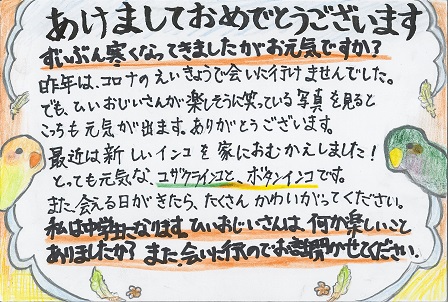 あけましておめでとうございます
ずいぶん寒くなってきましたがお元気ですか？
昨年は、コロナのえいきょうで会いに行けませんでした。
でも、ひいおじいさんが楽しそうに笑っている写真を見ると
こっちも元気が出ます。ありがとうございます。
最近は新しいインコを家におむかえしました！
とっても元気な、コザクラインコと、ボタンインコです。
また、会える日がきたら、たくさんかわいがってください。
私は中学生になります。ひいおじいさんは、何か楽しいこと
ありましたか？また、会いに行くのでお話聞かせてください。